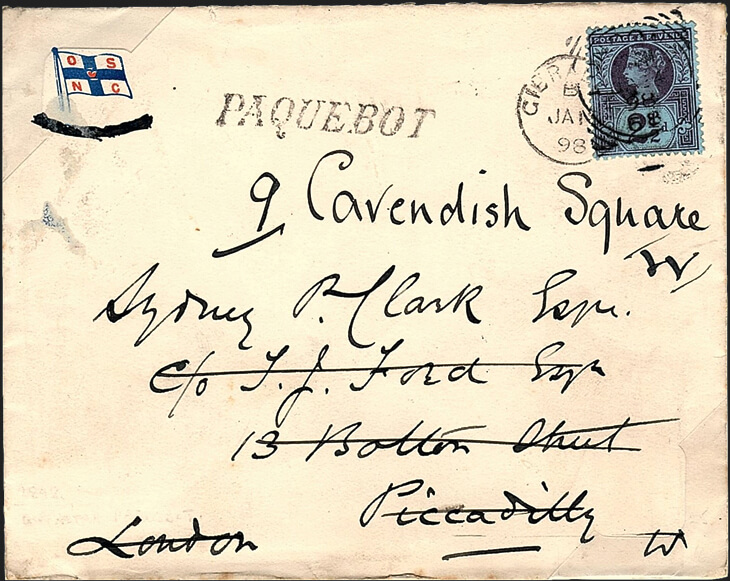 O S
N C
PAQUEBOT
POSTAGE & REVENUE
JAN
98
9 Cavendish Square
W
Sydney P. Clark Esqr.
c/o T. J. Ford Esqr
13 Bolton Street
Piccadilly
London W